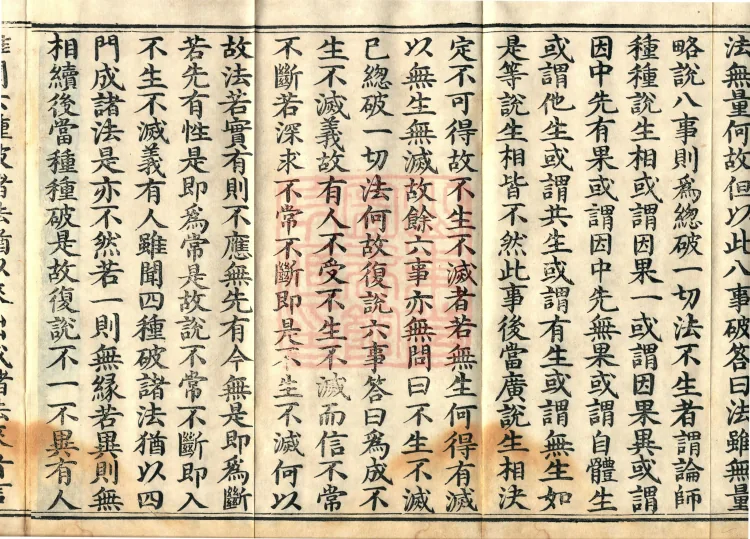 法無量何故但以此八事破答曰法雖無量
略說八事則爲總破一切法不生者謂論師
種種說生相或謂因果一或謂因果異或謂
因中先有果或謂因中先無果或謂自體生
或謂他生或謂共生或謂有生或謂無生如
是等說生相皆不然此事後當廣說生相決
定不可得故不生不滅者若無生何得有滅
以無生無滅故餘六事亦無問曰不生不滅
已總破一切法何故復說六事答曰爲成不
生不滅義故有人不受不生不滅而信不常
不斷若深求不常不斷即是不生不滅何以
故法若實有則不應無先有今無是即爲斷
若先有性是即爲常是故說不常不斷即入
不生不滅義有人雖聞四種破諸法猶以四
門成諸法是亦不然若一則無緣若異則無
相續後當種種破是故復說不一不異有人
種破諸法猶以來出成諸法來者言